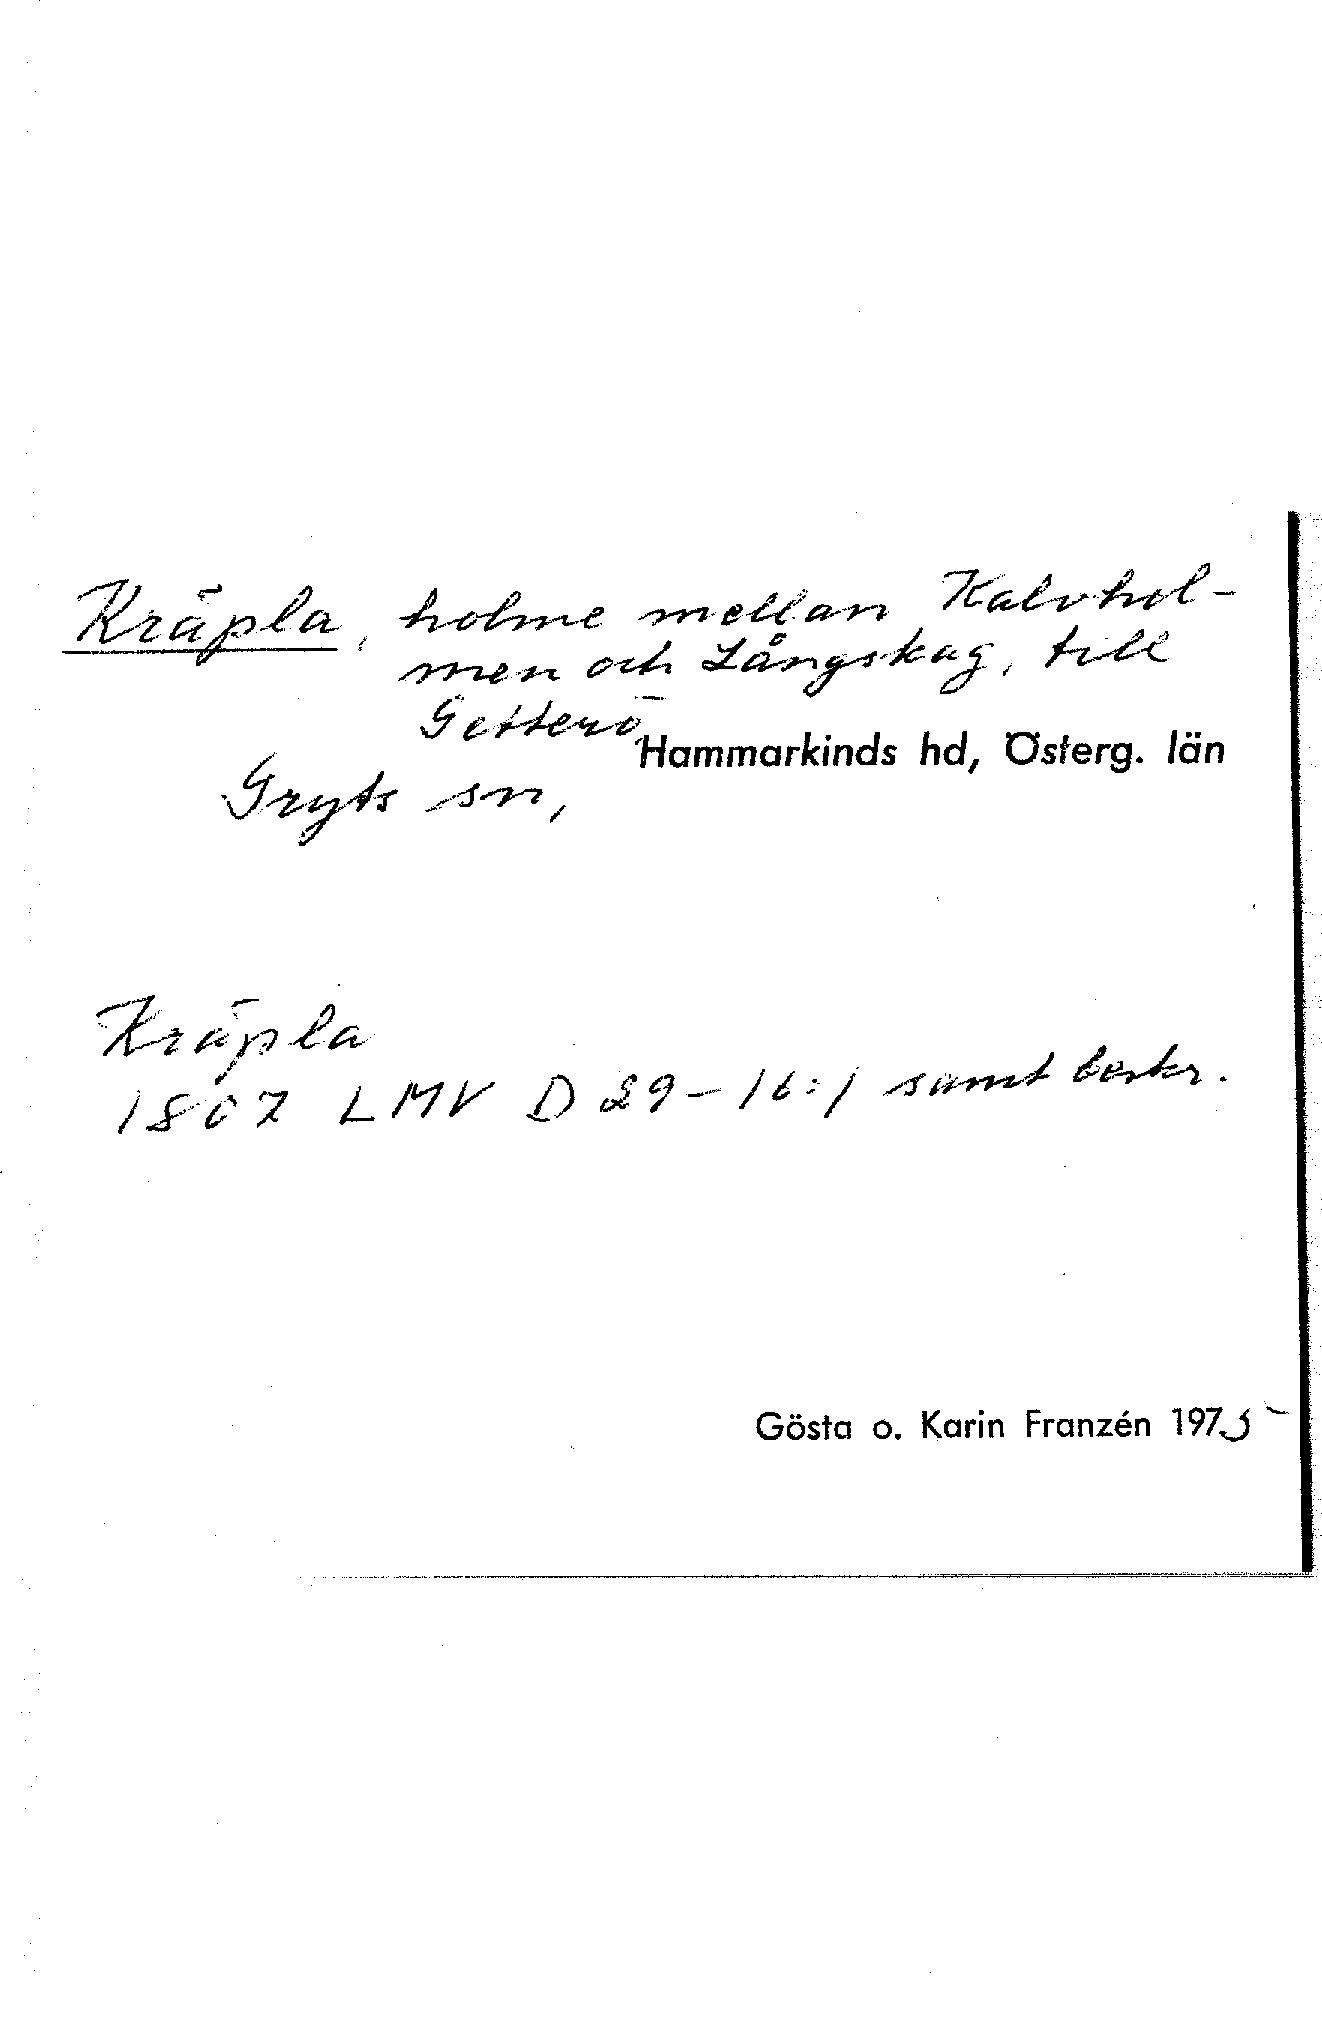 Kräpla, holme mellan Kalvhol-
men och Långskag, till
Getterö
Hammarkinds hd, Österg. län
Gryts sn,
Kräpla
1807 LMV D 29-16:1 samt beskr.
Gösta o. Karin Franzén 1975